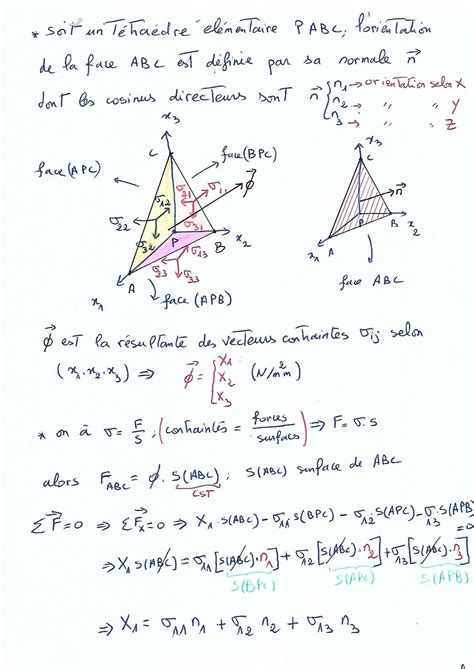 * soit un Tétraèdre élémentaire PABC, l'orientation
de la face ABC est définie par sa normale n⃗
dont les cosinus directeurs sont n⃗ { n1 → orientation selon X
n2 → " " Y
n3 → " " Z
x3
C
face (APC)
face (BPC)
σ12
σ22
σ32
σ21
σ11
σ31
ϕ⃗
P
B
x2
σ13
σ23
σ33
A
x1
face (APB)
x3
C
n⃗
P
B
x2
A
x1
face ABC
ϕ⃗ est la résultante des vecteurs contraintes σij selon
(x1.x2.x3) ⇒ ϕ⃗ = { X1 X2 X3 (N/mm²)
* on à σ = F/S ; (contraintes = forces/surfaces) ⇒ F = σ.S
alors F_ABC = ϕ. S(ABC) ; S(ABC) surface de ABC
CST
ΣF⃗=0 ⇒ ΣF⃗x=0 ⇒ X1.S(ABC) - σ11 S(BPC) - σ12 S(APC) - σ13.S(APB) =0
⇒ X1 S(ABC) = σ11 [S(ABC).n1] + σ12 [S(ABC).n2] + σ13 [S(ABC).n3]
S(BPC) S(APC) S(APB)
⇒ X1 = σ11 n1 + σ12 n2 + σ13 n3